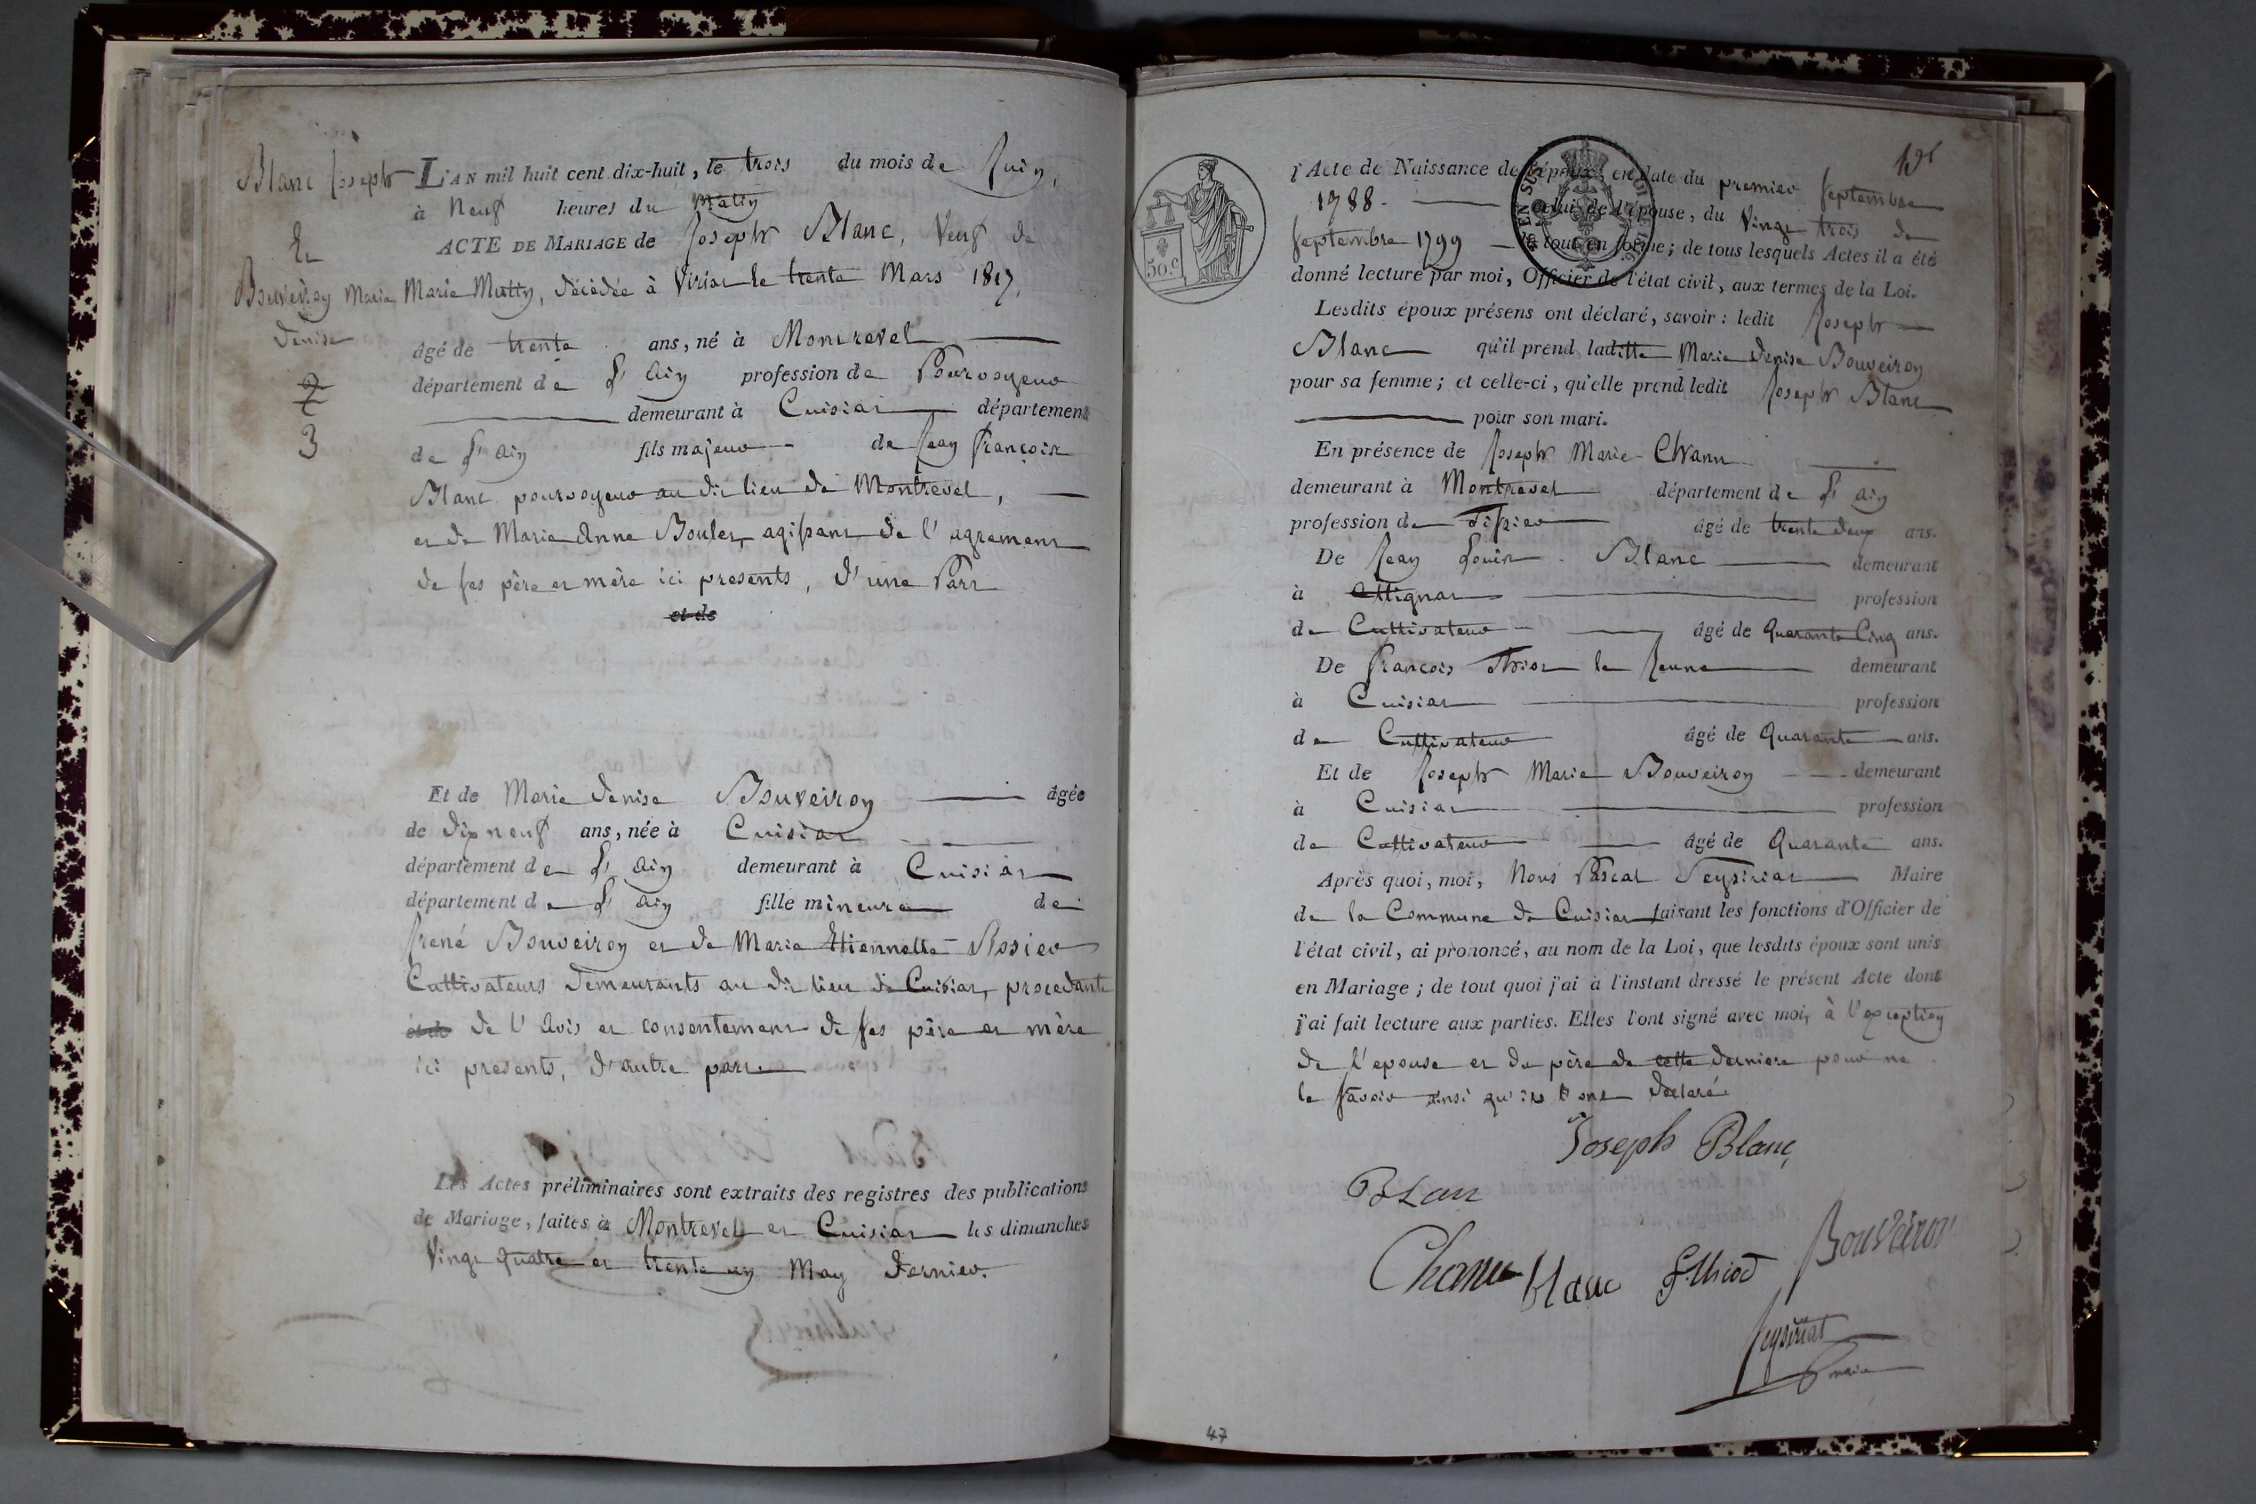 Blanc Joseph
Et
Bouveiron Marie
Denise
2
3
L'AN mil huit cent dix-huit, le trois du mois de Juin,
à Neuf heures du Matin
ACTE DE MARIAGE de Joseph Blanc, Veuf de
Marie Mutty, décédée à Viriat le trente Mars 1817,
âgé de trente ans, né à Montrevel
département de L'ain profession de Pourvoyeur
demeurant à Cuisiat département
de L'ain fils majeur de Jean François
Blanc pourvoyeur au dit lieu de Montrevel,
et de Marie Anne Boulet, agissant de l'agrement
de ses père et mère ici presents, d'une Part
et de
Et de Marie Denise Bouveiron âgée
de dix neuf ans, née à Cuisiat
département de L'ain demeurant à Cuisiat
département de L'ain fille mineure de
René Bouveiron et de Marie Etiennette
Cultivateurs demeurants au dit lieu de Cuisiat, procedante
et de de l'Avis et consentement de ses père et mère
ici presents, d'autre part
Les Actes préliminaires sont extraits des registres des publications
de Mariage, faites à Montrevel et Cuisiat les dimanches
Vingt quatre et trente un May dernier.
l'Acte de Naissance de l'époux, en date du premier Septembre
1788. celui de l'épouse, du Vingt trois de
Septembre 1799 le tout en forme; de tous lesquels Actes il a été
donné lecture par moi, Officier de l'état civil, aux termes de la Loi.
Lesdits époux présens ont déclaré, savoir: ledit Joseph
Blanc qu'il prend laditte Marie Denise Bouveiron
pour sa femme; et celle-ci, qu'elle prend ledit Joseph Blanc
pour son mari.
En présence de Joseph Marie Chanu
demeurant à Montrevel département de L'ain
profession de Tissier âgé de trente deux ans.
De Jean Louis Blanc demeurant
à Attignat profession
de Cultivateur âgé de Quarante Cinq ans.
De François Thiot le Jeune demeurant
à Cuisiat profession
de Cultivateur âgé de Quarante ans.
Et de Joseph Marie Bouveiron demeurant
à Cuisiat profession
de Cultivateur âgé de Quarante ans.
Après quoi, moi, Nous Pascal Teyssiriat Maire
de la Commune de Cuisiat faisant les fonctions d'Officier de
l'état civil, ai prononcé, au nom de la Loi, que lesdits époux sont unis
en Mariage; de tout quoi j'ai à l'instant dressé le présent Acte dont
j'ai fait lecture aux parties. Elles l'ont signé avec moi, à l'exception
de l'epouse et du père de cette derniere pour ne
le savoir ainsi qu'ils l'ont declaré
Joseph Blanc
BLan
Chanu blanc f. thiod Bouveiron
maire
50.c
EN SUS
47